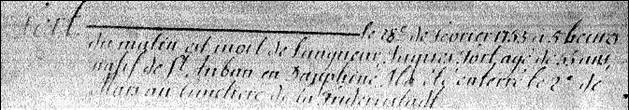 Fort le 28e de fevrier 1755 à 5 heures
du matin est mort de langueur, Jaques Fort agé de 55 ans,
natif de St. Auban en Dauphiné. Il a été enterré le 2e de
Mars au cimetiere de la